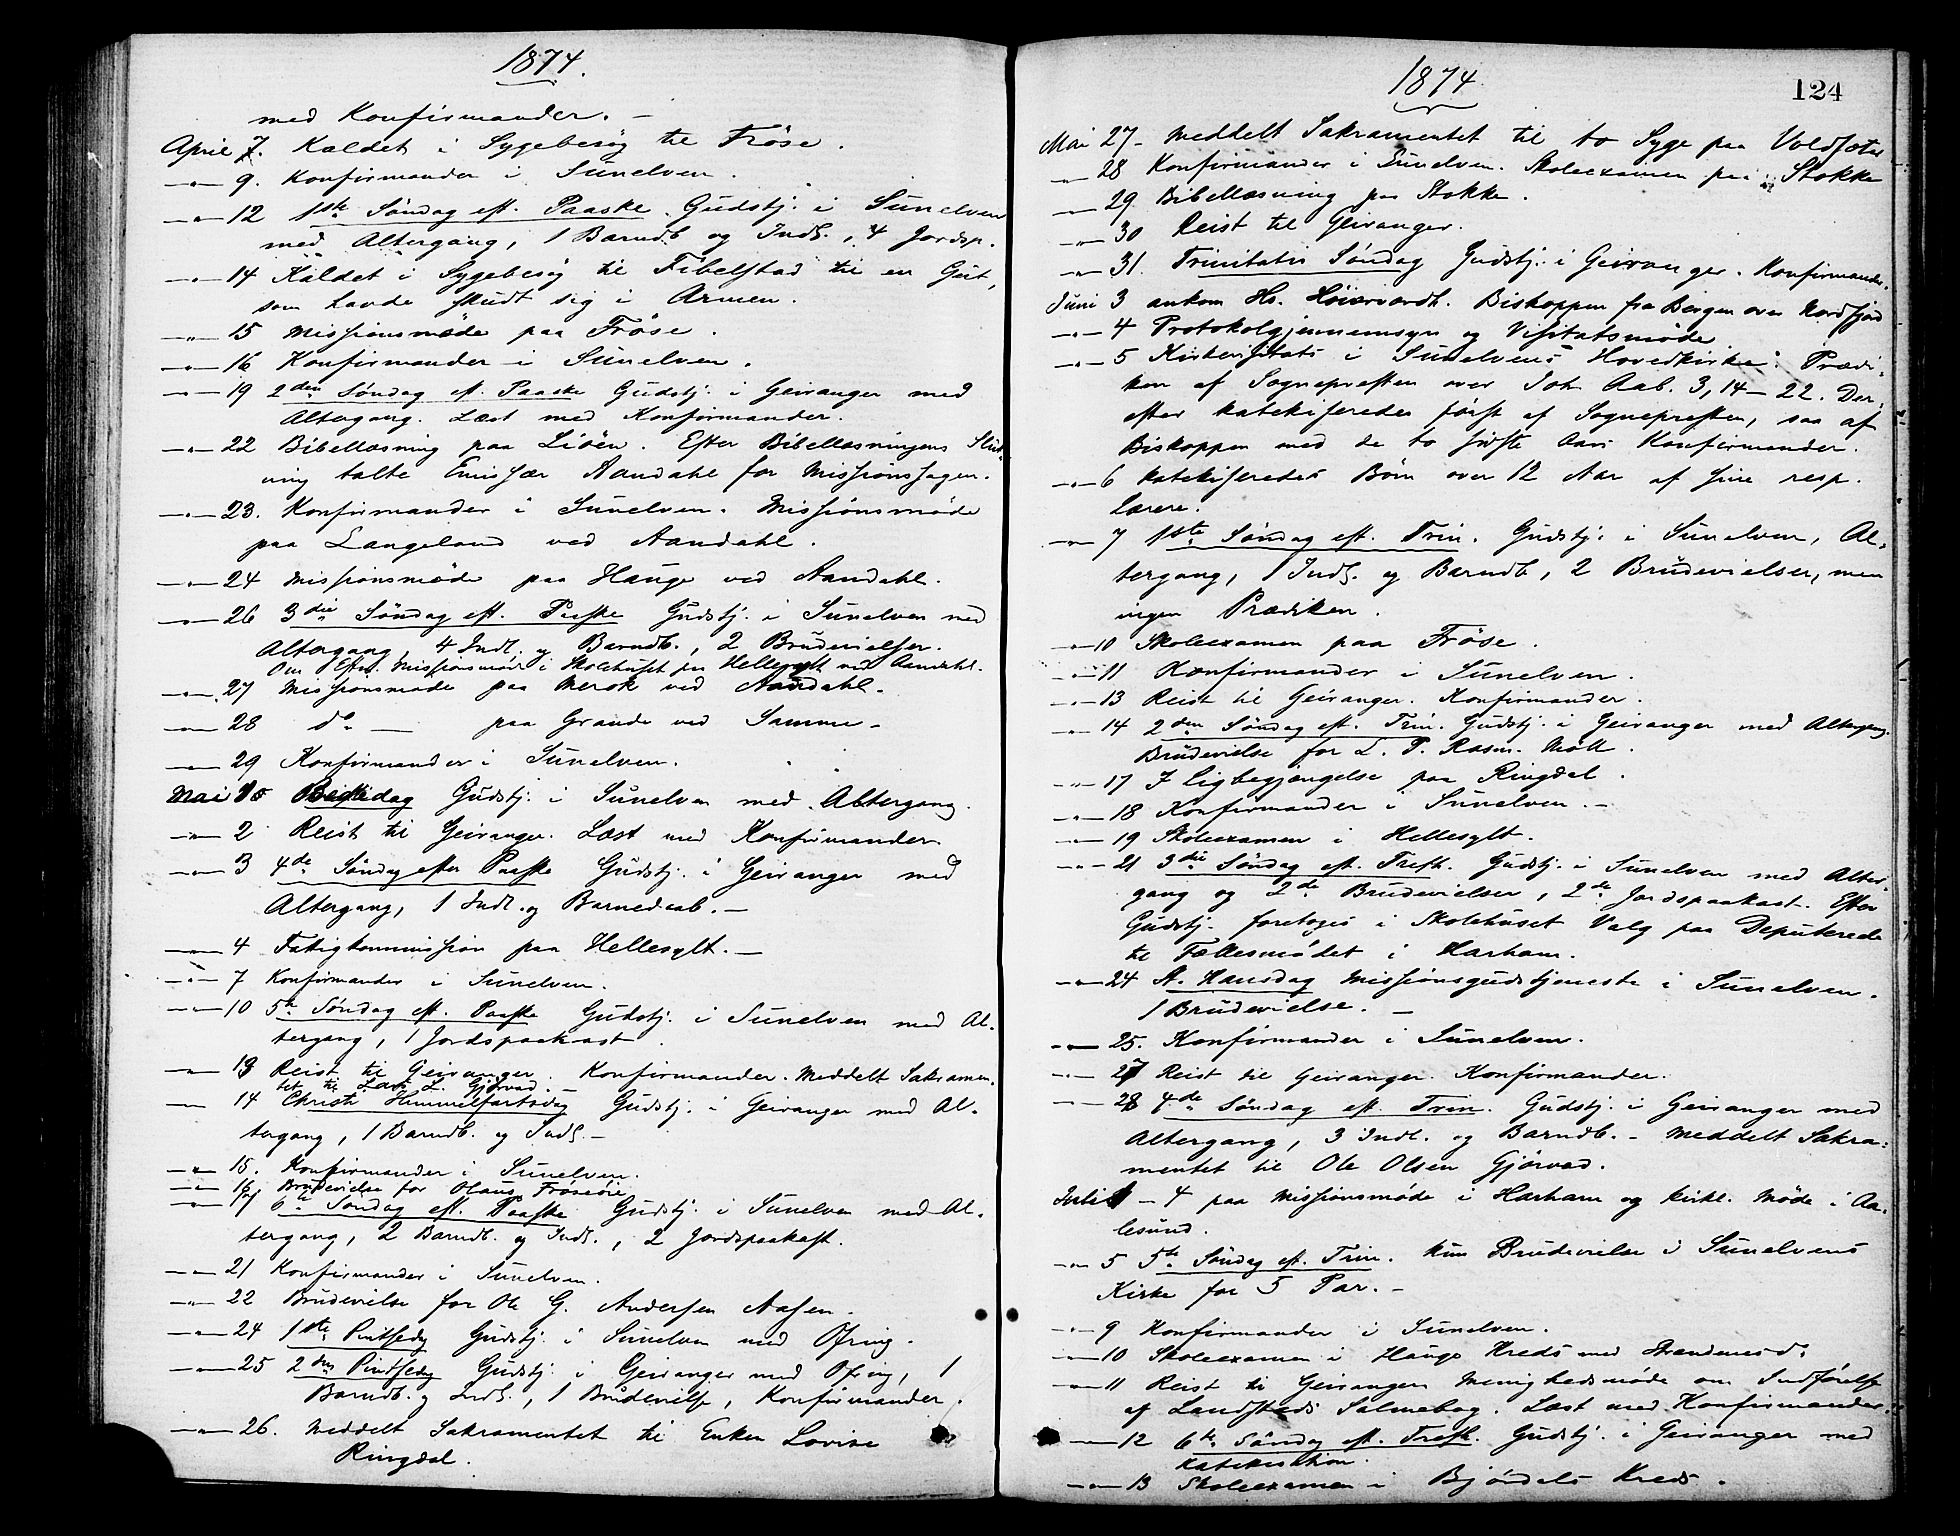 1874.
med Konfirmander. –
April 7. Kaldet i Sygebesøg til Frøse.
–"– 9. Konfirmander i Sunelven.
–"– 12 1ste Søndag eft. Paaske. Gudstj. i Sunelven
med Altergang, 1 Barndb og Indl., 4 Jordsp.
–"– 14 Kaldet i Sygebesøg til Fibelstad til en Gut,
som havde skudt sig i Armen.
–"– 15 Missionsmøde paa Frøse.
–"– 16 Konfirmander i Sunelven.
–"– 19 2den Søndag eft. Paaske Gudstj. i Geiranger med
Altergang. Læst med Konfirmander.
–"– 22 Bibellæsning paa Liøen. Efter Bibellæsningens Slut-
ning talte Emissær Aandahl for Missionssagen.
–"– 23. Konfirmander i Sunelven. Missionsmøde
paa Langeland ved Aandahl.
–"– 24 Missionsmøde paa Hauge ved Aandahl.
–"– 26 3die Søndag eft. Paaske Gudstj. i Sunelven med
Altergang, 4 Indl. og Barndb., 2 Brudevielser.
Om Efm. Missionsmøde i Skolehuset paa Hellesylt ved Aandahl.
–"– 27 Missionsmøde paa Merok ved Aandahl.
–"– 28 do — paa Grande ved Samme –
–"– 29 Konfirmander i Sunelven.
Mai 1 Bededag Gudstj. i Sunelven med Altergang.
–"– 2 Reist til Geiranger. Læst med Konfirmander
–"– 3 4de Søndag efter Paaske Gudstj. i Geiranger med
Altergang, 1 Indl. og Barnedaab. –
–"– 4 Fatigkommission paa Hellesylt. –
–"– 7 Konfirmander i Sunelven.
–"– 10 5te Søndag eft. Paaske Gudstj. i Sunelven med Al-
tergang, 1 Jordspaakast.
–"– 13 Reist til Geiranger. Konfirmander. Meddelt Sakramen-
tet til Lars L. Gjørvad. –
–"– 14 Christi Himmelfartsdag Gudstj. i Geiranger med Al-
tergang, 1 Barndb. og Indl. –
–"– 15. Konfirmander i Sunelven.
–"– 16 Brudevielse for Olaus Frøseøie
–"– 17 6te Søndag eft. Paaske Gudstj. i Sunelven med Al-
tergang, 2 Barndb. og Indl., 2 Jordspaakast.
–"– 21 Konfirmander i Sunelven.
–"– 22 Brudevielse for Ole G. Andersen Aasen.
–"– 24 1ste Pintsedag Gudstj. i Sunelven med Ofring.
–"– 25 2den Pindsedag Gudstj. i Geiranger med Ofring, 1
Barndb. og Indl., 1 Brudevielse, Konfirmander.
–"– 26. Meddelt Sakramentet til Enken Lovise
Ringdal.
1874.
124
Mai 27 – Meddelt Sakramentet til to Syge paa
–"– 28 Konfirmander i Sunelven. Skoleexamen paa Stokke
–"– 29 Bibellæsning paa Stokke.
–"– 30 Reist til Geiranger.
–"– 31. Trinitatis Søndag Gudstj. i Geiranger. Konfirmander.
Juni 3 ankom Hs. Høiærværdh. Biskoppen fra Bergen over Nordfjord
–"– 4 Protokolgjennemsyn og Visitatsmøde
–"– 5 Kirkevisitats i Sunelvens Hovedkirke. Prædi-
ken af Sognepresten over Joh. Aab. 3, 14–22. Der-
efter katekiseredes først af Sognepresten, saa af
Biskoppen med de to sidste Aars Konfirmander.
–"– 6 katekiseredes Børn over 12 Aar af sine resp.
Lærere.
–"– 7 1ste Søndag eft. Trin. Gudstj. i Sunelven, Al-
tergang, 1 Indl. og Barndb, 2 Brudevielser, men
ingen Prædiken.
–"– 10 Skoleexamen paa Frøse.
–"– 11 Konfirmander i Sunelven.
–"– 13 Reist til Geiranger. Konfirmander.
–"– 14 2den Søndag eft. Trin. Gudstj. i Geiranger med Altergang.
Brudevielse for L. P. Rasm. Møll.
–"– 17 I Ligbegjængelse paa Ringdal.
–"– 18 Konfirmander i Sunelven. –
–"– 19 Skoleexamen i Hellesylt.
–"– 21 3die Søndag eft. Trefh. Gudstj. i Sunelven med Alter-
gang og 2de Brudevielser, 2de Jordspaakast. Efter
Gudstj. foretoges i Skolehuset Valg paa Deputerede
til Fællesmødet i Harham.
–"– 24 St. Hansdag Missionsgudstjeneste i Sunelven.
1 Brudevielse. –
–"– 25. Konfirmander i Sunelven.
–"– 27 Reist til Geiranger. Konfirmander.
–"– 28 4de Søndag eft. Trin. Gudstj. i Geiranger med
Altergang, 3 Indl. og Barndb. – Meddelt Sakra-
mentet til Ole Olsen Gjørvad.
Juli 1 – 4 paa Missionsmøde i Harham og kirkl. Møde i Aa-
lesund.
–"– 5 5te Søndag eft. Trin. Kun Brudevielse i Sunelvens
Kirke for 5 Par. –
–"– 9 Konfirmander i Sunelven.
–"– 10 Skoleexamen i Hauge Kreds med
–"– 11 Reist til Geiranger. Menighedsmøde om Indførelse
af Landstads Salmebog. Læst med Konfirmander.
–"– 12 6te Søndag eft. Trefh. Gudstj. i Geiranger med
Katekisation.
–"– 13 Skoleexamen i Bjørdals Kreds.